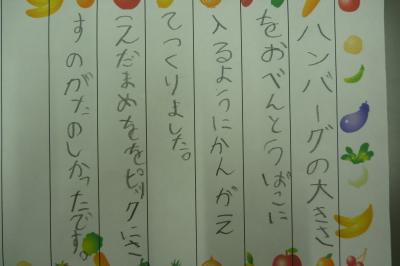 ハンバーグの大きさ
をおべんとうばこに
入るようにかんがえ
てつくりました。
えだまめををピックにさ
すのがたのしかったです。